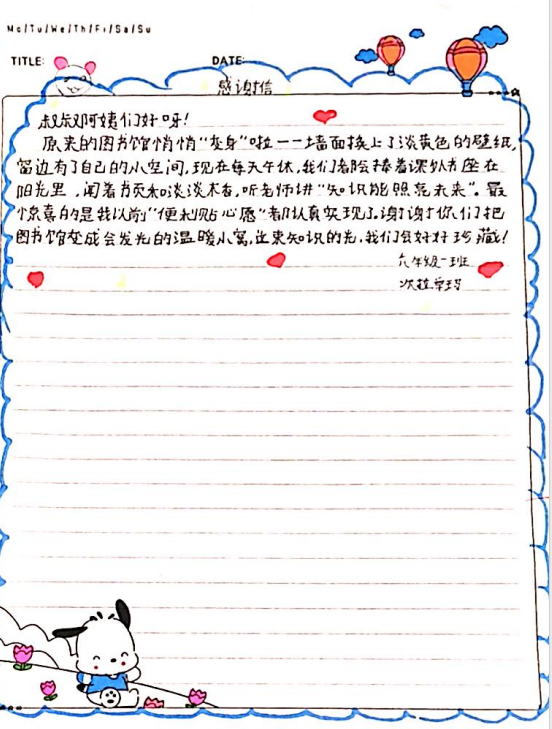 Mo/Tu/We/Th/Fr/Sa/Su
TITLE: DATE:
感谢信
叔叔阿姨们好呀!
原来的图书馆悄悄"变身"啦——墙面换上了淡黄色的壁纸,
窗边有了自己的小空间,现在每天午休,我们都会捧着课外书座在
阳光里,闻着书页和淡淡木香,听老师讲"知识能照亮未来"。最
惊喜的是我以前"便利贴心愿"都认真实现了。谢谢你们把
图书馆变成会发光的温暖小窝,这束知识的光,我们会好好珍藏!
六年级一班
次拉卓玛